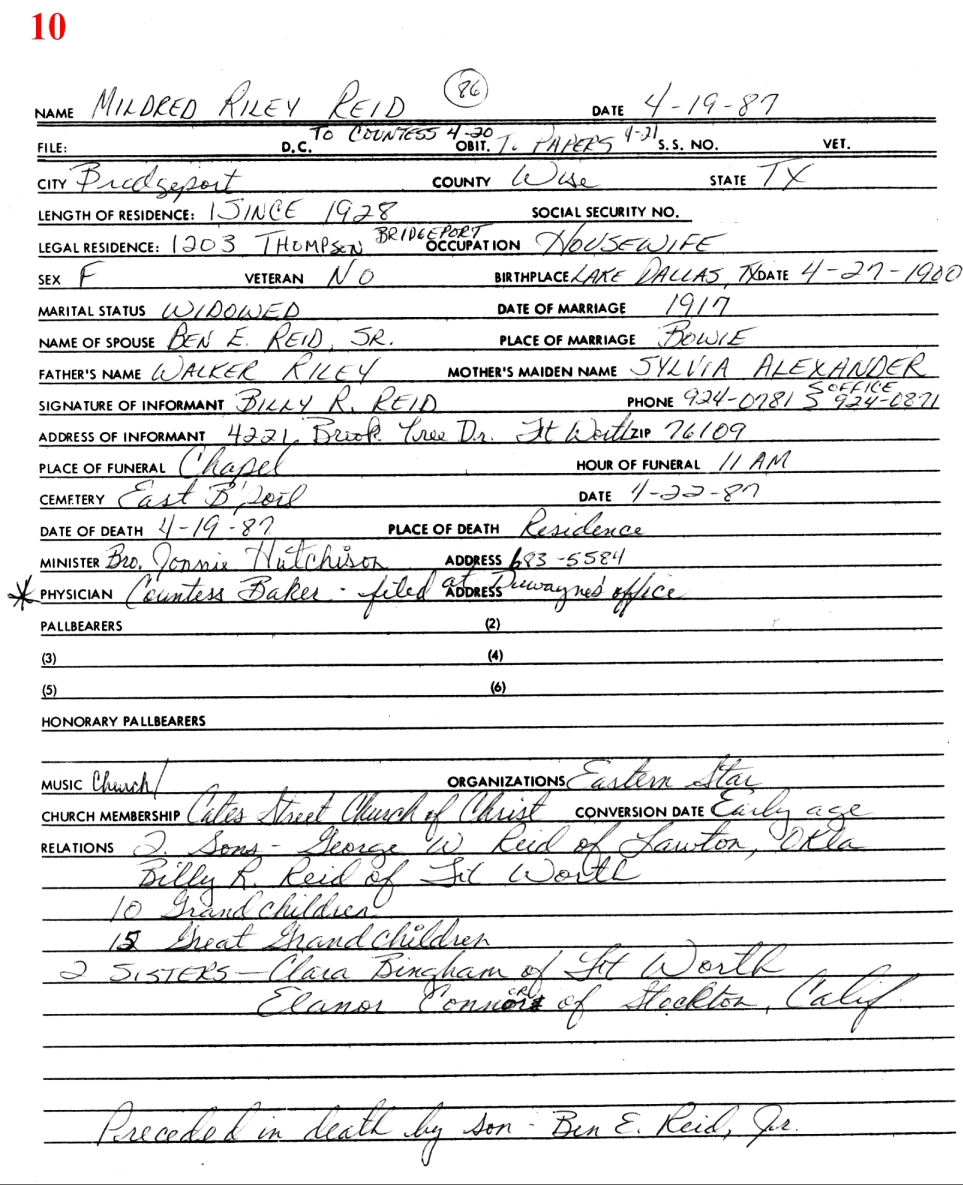 10
NAME MILDRED RILEY REID (86) DATE 4-19-87
FILE: D.C. TO COUNTESS 4-20 OBIT. T. PAPERS 4-21 S.S. NO. VET.
CITY Bridgeport COUNTY Wise STATE TX
LENGTH OF RESIDENCE: SINCE 1928 SOCIAL SECURITY NO.
LEGAL RESIDENCE: 1203 THOMPSON BRIDGEPORT OCCUPATION HOUSEWIFE
SEX F VETERAN NO BIRTHPLACE LAKE DALLAS, TX DATE 4-27-1900
MARITAL STATUS WIDOWED DATE OF MARRIAGE 1917
NAME OF SPOUSE BEN E. REID, SR. PLACE OF MARRIAGE BOWIE
FATHER'S NAME WALKER RILEY MOTHER'S MAIDEN NAME SYLVIA ALEXANDER
SIGNATURE OF INFORMANT BILLY R. REID PHONE 924-0781 OFFICE 924-0871
ADDRESS OF INFORMANT 4221 Brook Tree Dr. Ft Worth ZIP 76109
PLACE OF FUNERAL Chapel HOUR OF FUNERAL 11 AM
CEMETERY East B'port DATE 4-22-87
DATE OF DEATH 4-19-87 PLACE OF DEATH Residence
MINISTER Bro. Jonnie Hutchison ADDRESS 683-5584
* PHYSICIAN Countess Baker - filed at ADDRESS Duwayne's office
PALLBEARERS (2)
(3) (4)
(5) (6)
HONORARY PALLBEARERS
MUSIC Church ORGANIZATIONS Eastern Star
CHURCH MEMBERSHIP Cates Street Church of Christ CONVERSION DATE Early age
RELATIONS 2 Sons - George W Reid of Lawton, Okla
Billy R. Reid of Ft Worth
10 Grandchildren
15 Great Grandchildren
2 SISTERS - Clara Bingham of Ft Worth
Elanor Connor of Stockton, Calif.
Preceded in death by son - Ben E. Reid, Jr.